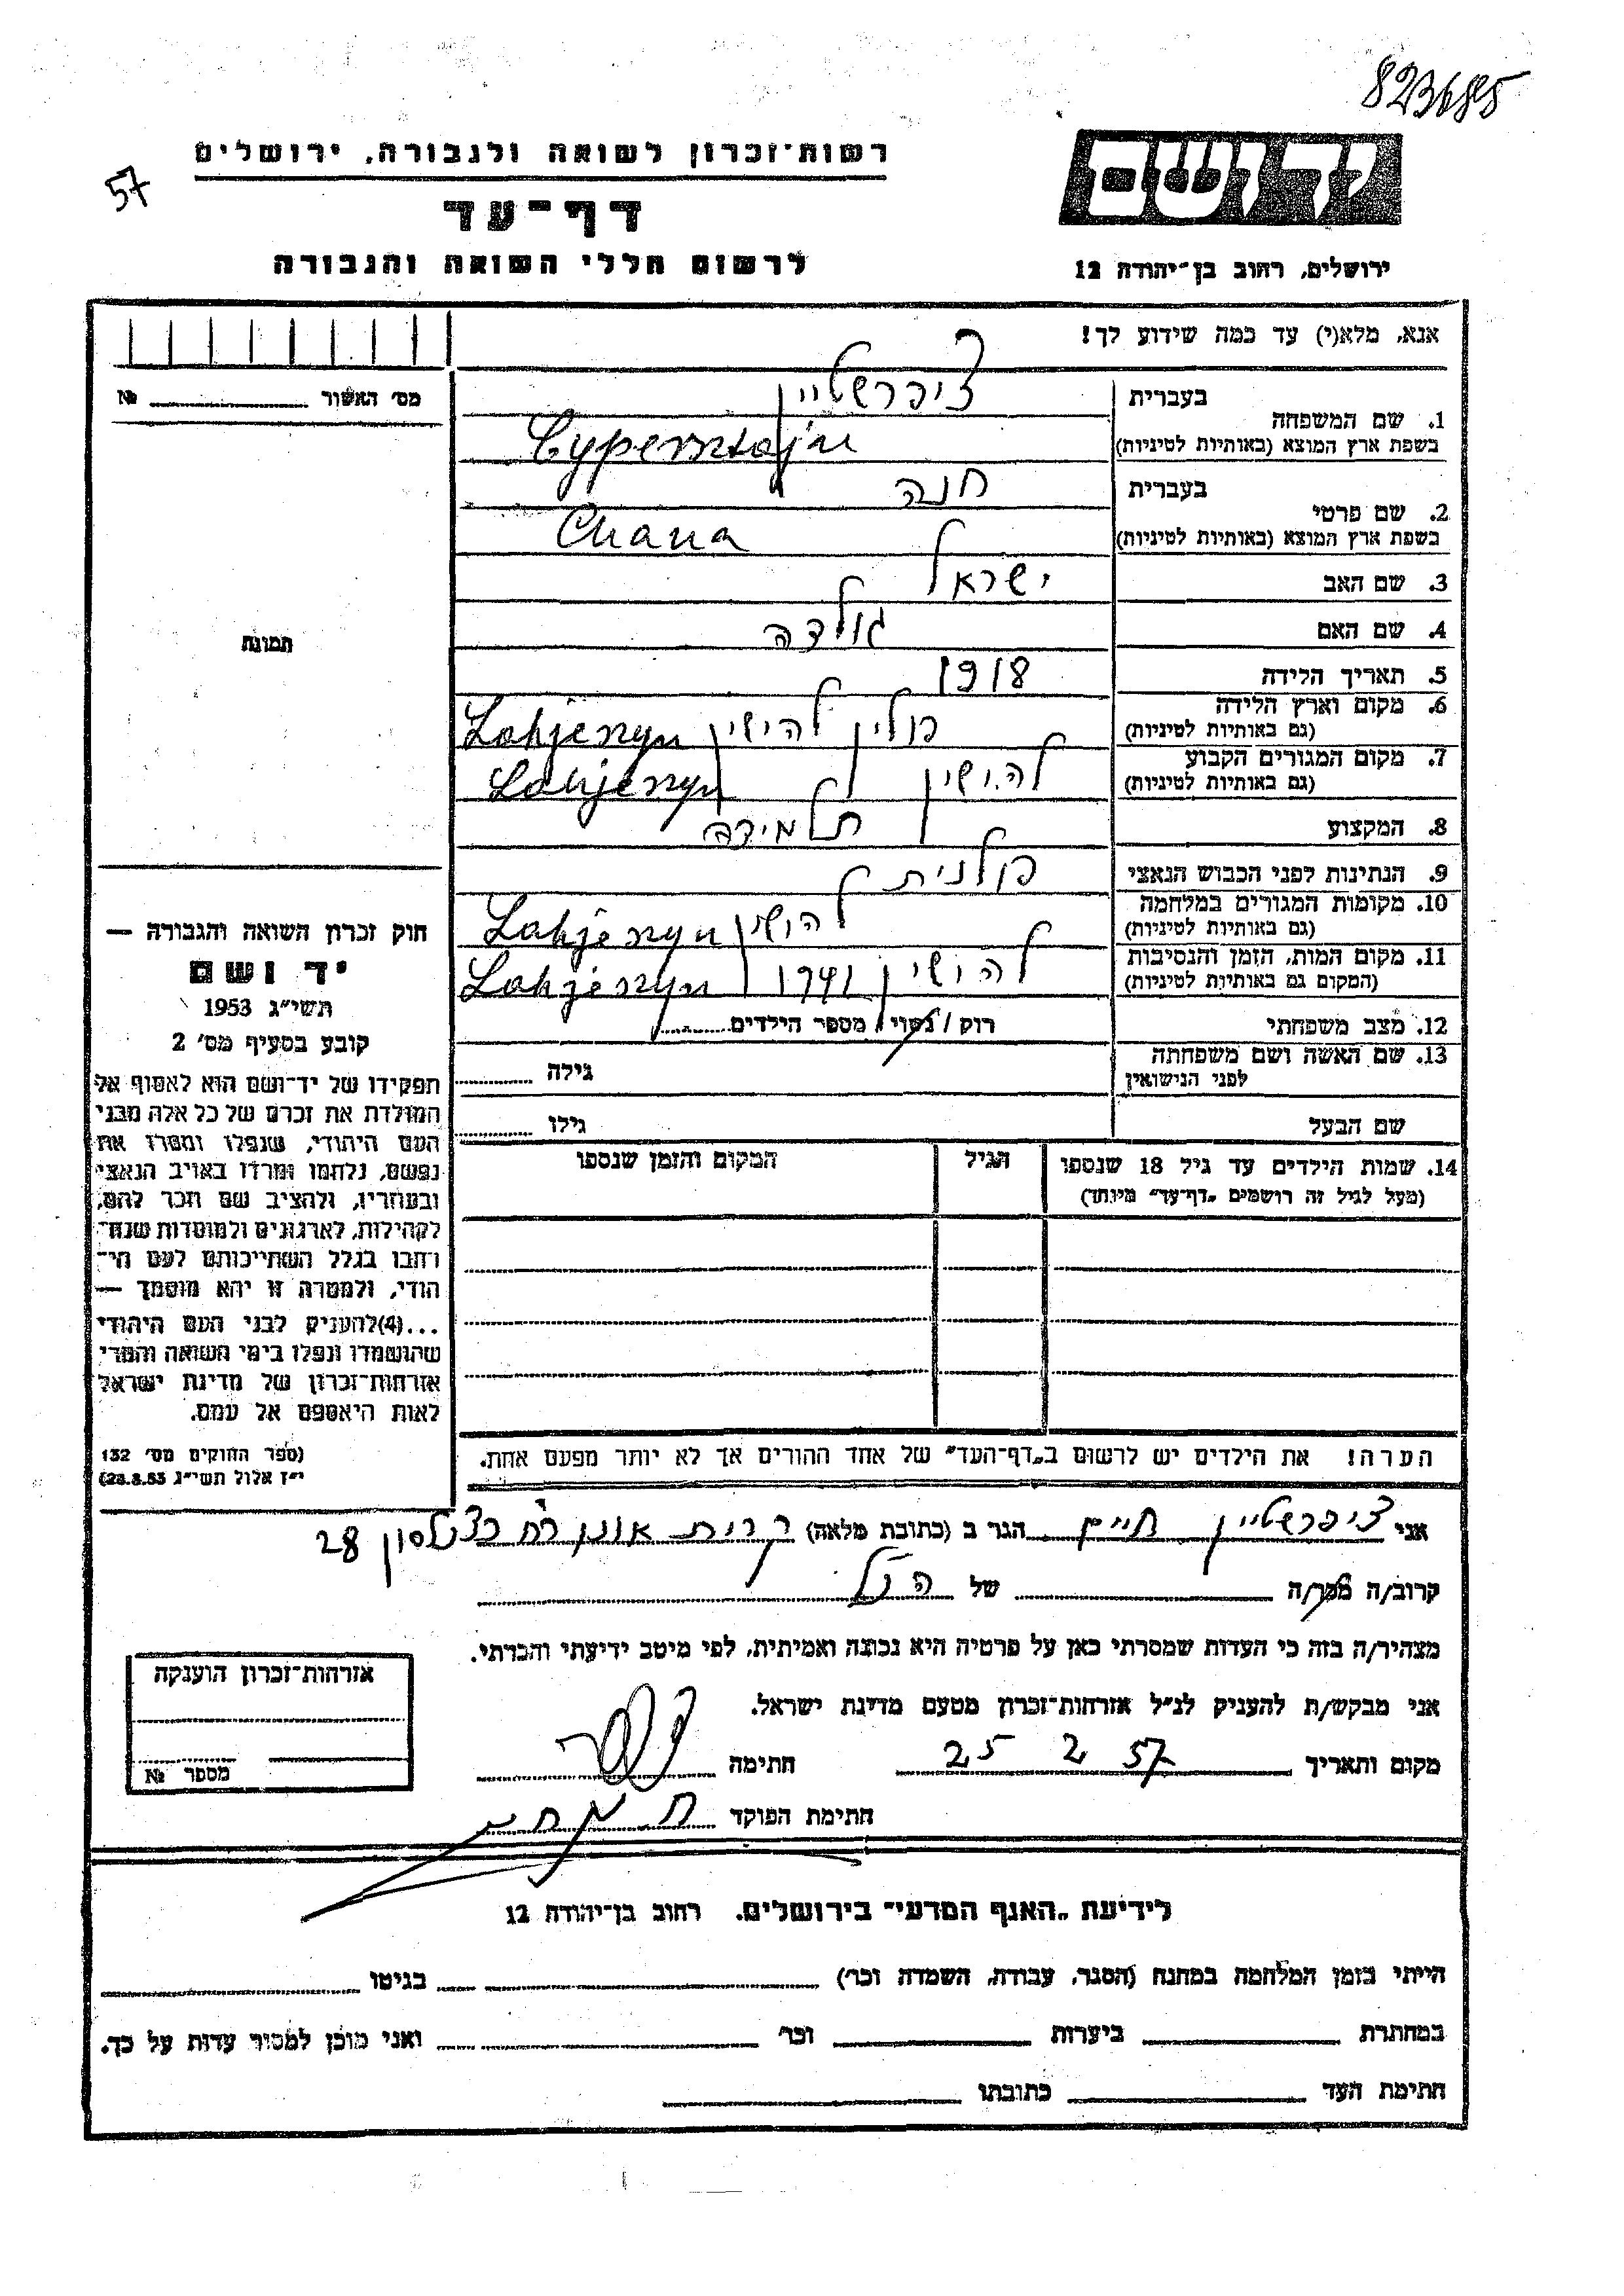 823685
רשות־זכרון לשואה ולגבורה, ירושלים
57
יד ושם
דף־עד
לרשום חללי השואה והגבורה
ירושלים, רחוב בן־יהודה 12
אנא, מלא(י) עד כמה שידוע לך!
מס׳ האשור № 
1. שם המשפחה בעברית ציפרשטיין
בשפת ארץ המוצא (באותיות לטיניות) Cypersztajn
2. שם פרטי בעברית חנה
בשפת ארץ המוצא (באותיות לטיניות) Chana
3. שם האב ישראל
4. שם האם גולדה
תמונה
5. תאריך הלידה 1918
6. מקום וארץ הלידה פולין להישין
(גם באותיות לטיניות)
7. מקום המגורים הקבוע להישין
(גם באותיות לטיניות)
8. המקצוע תלמידה
9. הנתינות לפני הכבוש הנאצי פולנית
10. מקומות המגורים במלחמה להישין
(גם באותיות לטיניות)
11. מקום המות, הזמן והנסיבות להישין 1941
(המקום גם באותיות לטיניות)
12. מצב משפחתי רוק / נשוי / מספר הילדים
13. שם האשה ושם משפחתה גילה
לפני הנישואין
שם הבעל גילו
14. שמות הילדים עד גיל 18 שנספו הגיל המקום והזמן שנספו
(מעל לגיל זה רושמים „דף־עד״ מיוחד)
חוק זכרון השואה והגבורה —
יד ושם
תשי״ג 1953
קובע בסעיף מס׳ 2
תפקידו של יד־ושם הוא לאסוף אל
המולדת את זכרם של כל אלה מבני
העם היהודי, שנפלו ומסרו את
נפשם, נלחמו ומרדו באויב הנאצי
ובעוזריו, ולהציב שם וזכר להם,
לקהילות, לארגונים ולמוסדות שנח־
רבו בגלל השתייכותם לעם הי־
הודי, ולמטרה זו יהא מוסמך —
...(4) להעניק לבני העם היהודי
שהושמדו ונפלו בימי השואה והמרי
אזרחות־זכרון של מדינת ישראל
לאות היאספם אל עמם.
(ספר החוקים מס׳ 132
י״ז אלול תשי״ג 28.8.53)
הערה! את הילדים יש לרשום ב„דף־העד״ של אחד ההורים אך לא יותר מפעם אחת.
אני ציפרשטיין חיים הגר ב (כתובת מלאה) קרית אונו רח׳ כצנלסון 28
קרוב/ה מכר/ה של הנ״ל
מצהיר/ה בזה כי העדות שמסרתי כאן על פרטיה היא נכונה ואמיתית, לפי מיטב ידיעתי והכרתי.
אני מבקש/ת להעניק לנ״ל אזרחות־זכרון מטעם מדינת ישראל.
מקום ותאריך 25 2 57 חתימה
חתימת הפוקד
אזרחות־זכרון הוענקה
מספר №
לידיעת „האגף המדעי״ בירושלים, רחוב בן־יהודה 12
הייתי בזמן המלחמה במחנה (הסגר, עבודה, השמדה וכו׳) בגיטו
במחתרת ביערות וכו׳ ואני מוכן למסור עדות על כך.
חתימת העד כתובתו